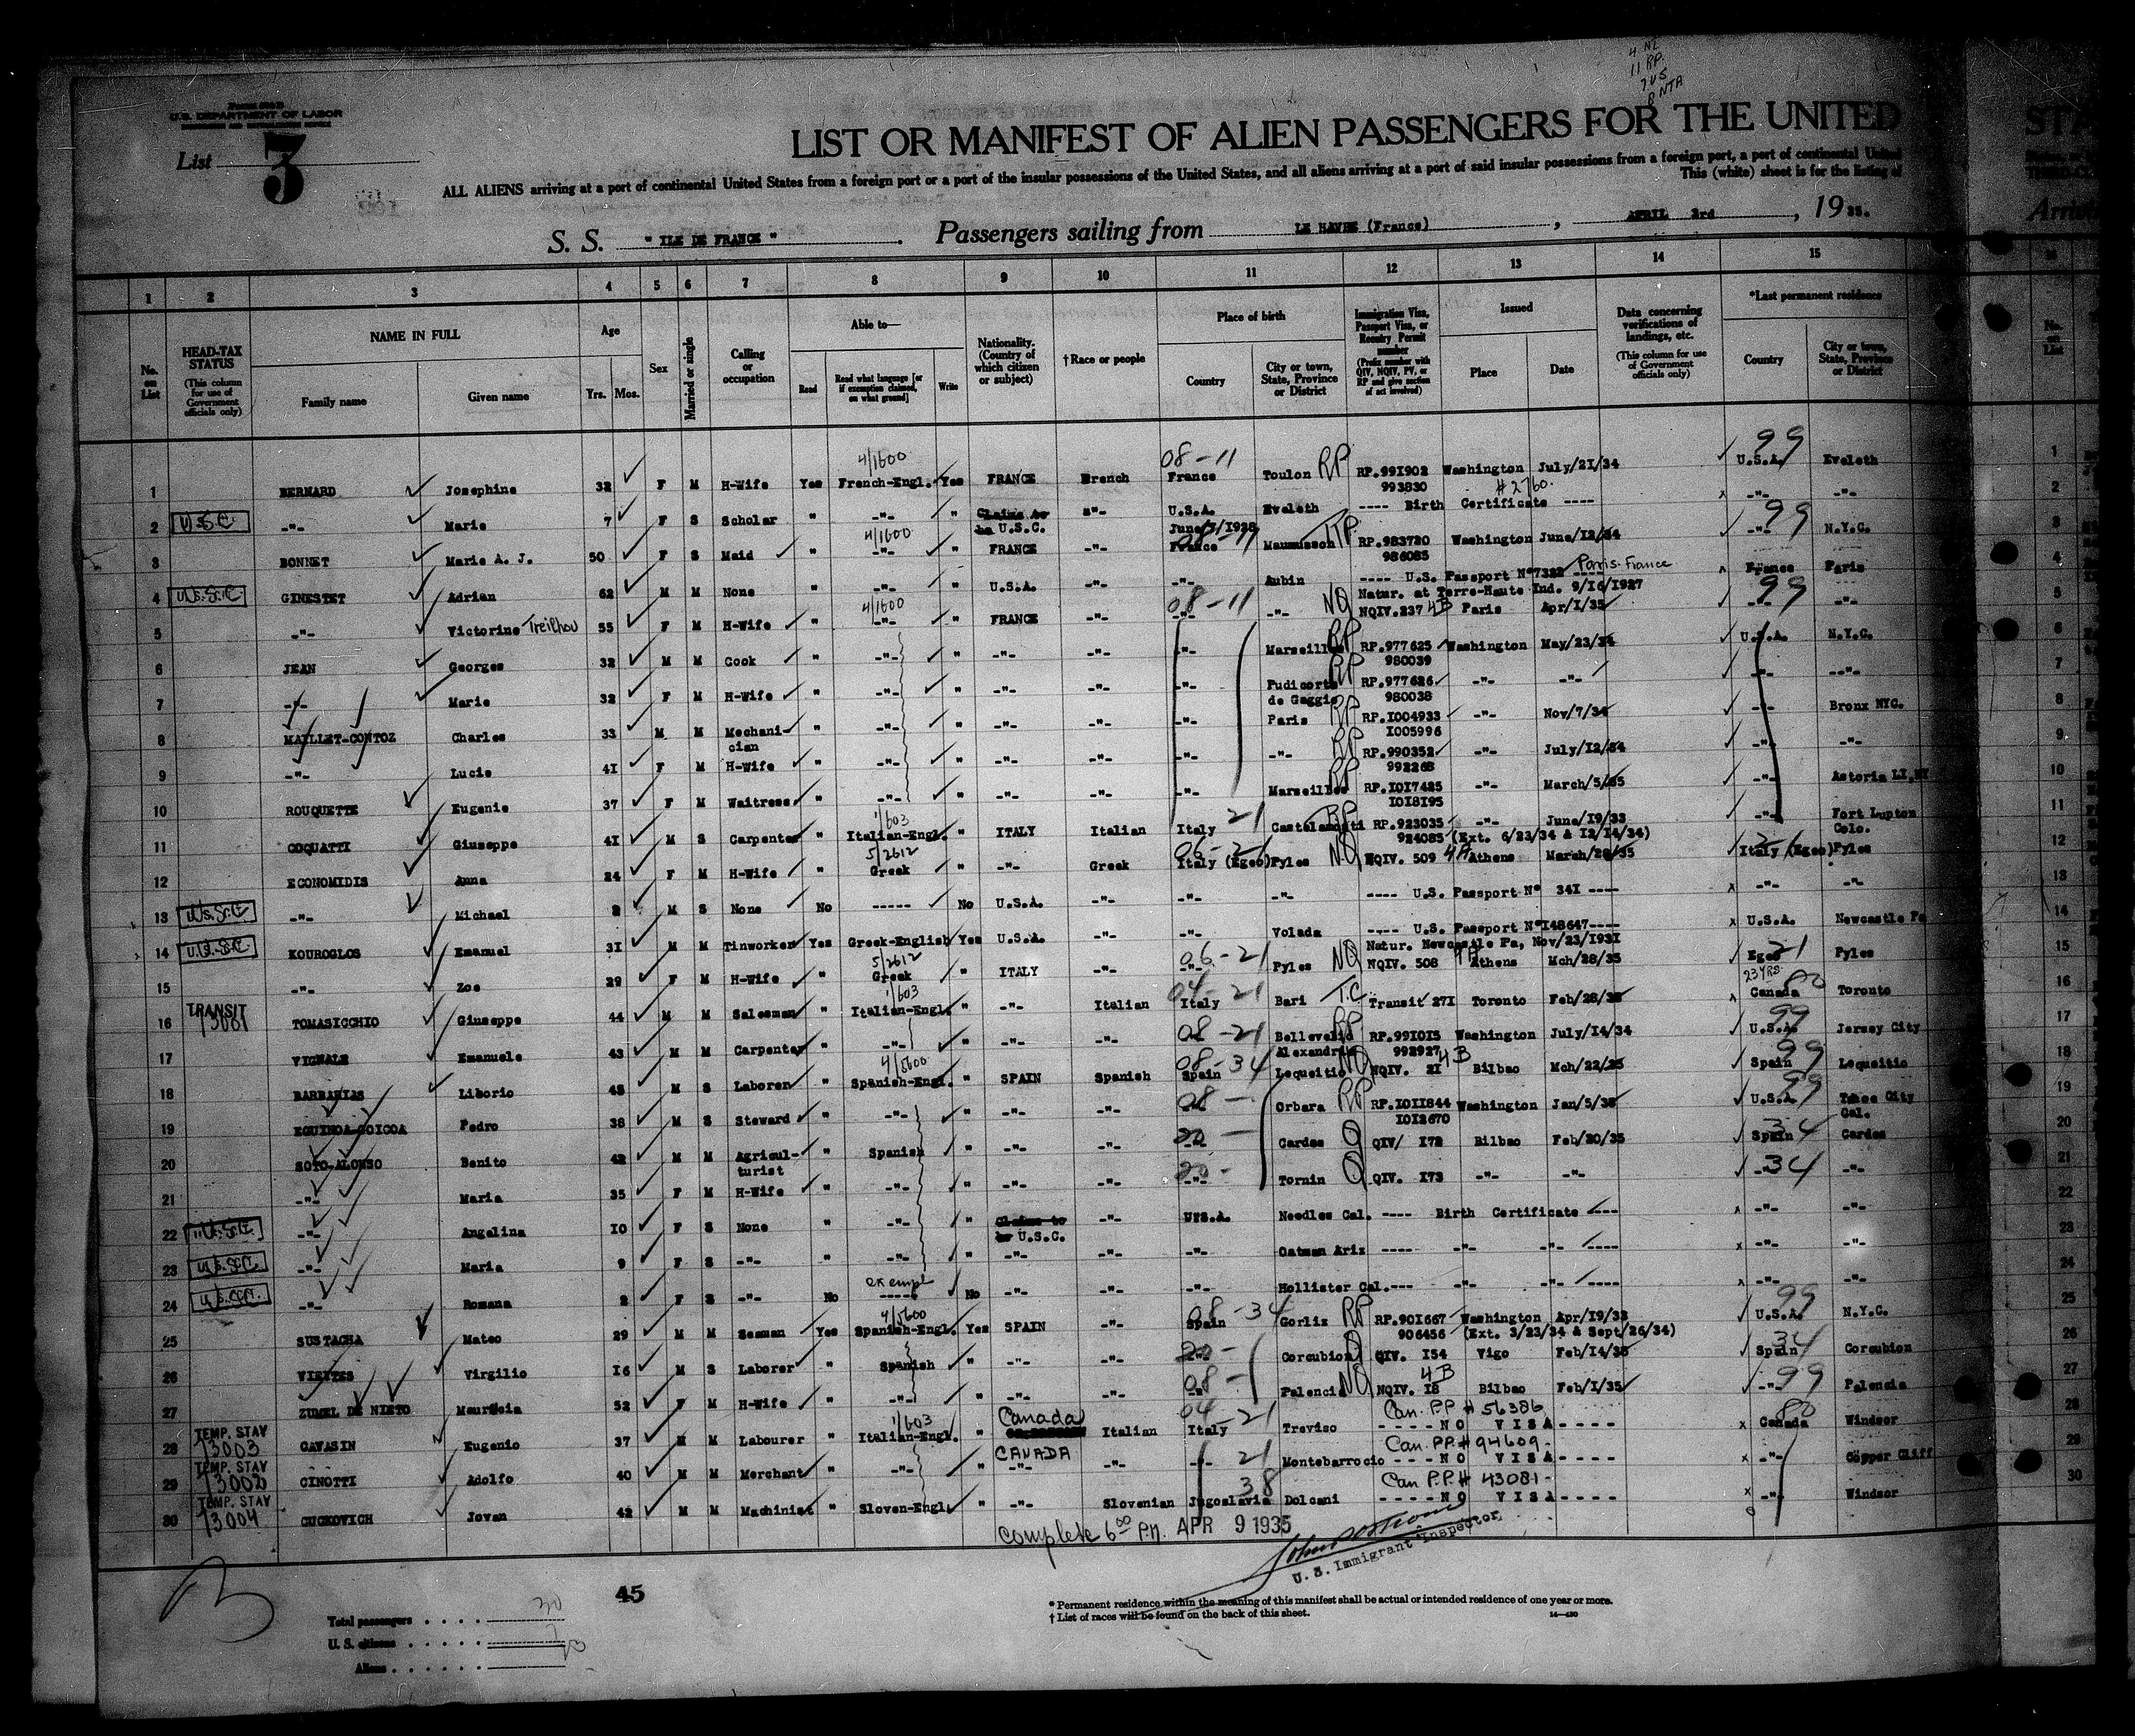 4 NL
11 RP.
7 US
8 NTA
U.S. DEPARTMENT OF LABOR
List 3
LIST OR MANIFEST OF ALIEN PASSENGERS FOR THE UNITED
STA
ALL ALIENS arriving at a port of continental United States from a foreign port or a port of the insular possessions of the United States, and all aliens arriving at a port of said insular possessions from a foreign port, a port of continental United
This (white) sheet is for the listing of
S. S. " ILE DE FRANCE " . Passengers sailing from LE HAVRE (France) , APRIL 3rd , 1935.
1 2 3 4 5 6 7 8 9 10 11 12 13 14 15
No. on List
HEAD-TAX STATUS (This column for use of Government officials only)
NAME IN FULL
Family name Given name
Age Yrs. Mos.
Sex
Married or single
Calling or occupation
Able to—
Read Read what language [or if exemption claimed, on what ground] Write
Nationality. (Country of which citizen or subject)
†Race or people
Place of birth
Country City or town, State, Province or District
Immigration Visa, Passport Visa, or Reentry Permit number (Prefix number with QIV, NQIV, PV, or RP and give section of act involved)
Issued
Place Date
Data concerning verifications of landings, etc. (This column for use of Government officials only)
*Last permanent residence
Country City or town, State, Province or District
4/1600 08-11 99
1 BERNARD Josephine 32 F M H-Wife Yes French-Engl. Yes FRANCE French France Toulon RP RP.991902 993830 Washington July/21/34 U.S.A. Eveleth
#2760.
2 U.S.C. -"- Marie 7 F S Scholar " -"- " Claims to be U.S.C. -"- U.S.A. Eveleth ---- Birth Certificate ---- -"- -"-
4/1600 99
3 BONNET Marie A. J. 50 F S Maid " -"- " FRANCE -"- France RP RP.983720 986085 Washington June/12/34 -"- N.Y.C.
4 U.S.C. GINESTET Adrian 62 M M None " -"- " U.S.A. -"- -"- Aubin ---- U.S. Passport N°7322 ---- Paris-France France Paris
Natur. at Terre-Haute Ind. 9/16/1927
4/1600 08-11 99
5 -"- Victorine Treilhou 55 F M H-Wife " -"- " FRANCE -"- -"- -"- NQ NQIV.237 4B Paris Apr/1/35 -"- -"-
6 JEAN Georges 32 M M Cook " -"- " -"- -"- -"- Marseille RP RP.977625 980039 Washington May/23/34 U.S.A. N.Y.C.
7 -"- Marie 32 F M H-Wife " -"- " -"- -"- -"- RP RP.977626 980038 -"- -"- -"- -"-
8 MAILLET-CONTOZ Charles 33 M M Mechanician " -"- " -"- -"- -"- Paris RP RP.1004933 1005996 -"- Nov/7/34 -"- Bronx NYC.
9 -"- Lucie 41 F M H-Wife " -"- " -"- -"- -"- -"- RP RP.990352 992268 -"- July/12/34 -"- -"-
10 ROUQUETTE Eugenie 37 F M Waitress " -"- " -"- -"- -"- Marseille RP RP.1017425 1018195 -"- March/5/35 -"- Astoria LI.NY
1/603 21
11 COQUATTI Giuseppe 41 M S Carpenter " Italian-Engl. " ITALY Italian Italy RP RP.923035 924085 -"- June/19/33 -"- Fort Lupton Colo.
(Ext. 6/23/34 & 12/14/34)
5/2612 06-21
12 ECONOMIDIS Anna 24 F M H-Wife " Greek " -"- Greek Italy (Egeo) Pyles NQ NQIV. 509 4A Athens March/28/35 Italy (Egeo) Pyles
13 U.S.C. -"- Michael 2 M S None No ----- No U.S.A. -"- -"- -"- ---- U.S. Passport N° 341 ---- -"- -"-
14 U.S.C. KOUROGLOS Emanuel 31 M M Tinworker Yes Greek-English Yes U.S.A. -"- -"- Volada ---- U.S. Passport N°148647---- U.S.A. Newcastle Pa
Natur. Newcastle Pa, Nov/23/1931
5/2612 06-21 21
15 -"- Zoe 29 F M H-Wife " Greek " ITALY -"- -"- Pyles NQ NQIV. 508 4A Athens Mch/28/35 Egeo Pyles
1/603 04-21 23 YRS.
16 TRANSIT TOMASICCHIO Giuseppe 44 M M Salesman " Italian-Engl. " -"- Italian Italy Bari T.C. Transit 271 Toronto Feb/28/35 Canada Toronto
08-21 99
17 VIGNALE Emanuele 43 M M Carpenter " -"- " -"- -"- -"- Alexandria RP RP.991015 992927 Washington July/14/34 U.S.A. Jersey City
4/5600 08-34 99
18 BARBARIAS Liborio 45 M S Laborer " Spanish-Engl. " SPAIN Spanish Spain Lequeitio NQ NQIV. 21 4B Bilbao Mch/22/35 Spain Lequeitio
08- 99
19 EGUINOA-GOICOA Pedro 38 M S Steward " -"- " -"- -"- -"- Orbara RP RP.1011844 1012670 Washington Jan/5/35 U.S.A. Cal.
20- 34
20 SOTO-ALONSO Benito 42 M M Agriculturist " Spanish " -"- -"- -"- Cardes Q QIV/ 172 Bilbao Feb/20/35 Spain Cardes
20- 34
21 -"- Maria 35 F M H-Wife " -"- " -"- -"- -"- Tornin Q QIV. 173 -"- -"- -"- -"-
22 U.S.C. -"- Angelina 10 F S None " -"- " Claims to be U.S.C. -"- U.S.A. Needles Cal. ---- Birth Certificate ---- -"- -"-
23 U.S.C. -"- Maria 9 F S -"- " -"- " -"- -"- -"- Oatman Ariz ---- -"- -"- ---- -"- -"-
24 U.S.C. -"- Romana 2 F S -"- No exempt ----- No -"- -"- -"- Hollister Cal.--- -"- -"- ---- -"- -"-
4/5600 08-34 99
25 SUSTACHA Mateo 29 M M Seaman Yes Spanish-Engl. Yes SPAIN -"- Spain Gorliz RP RP.901667 906456 Washington Apr/19/33 U.S.A. N.Y.C.
(Ext. 3/23/34 & Sept/26/34)
20- 34
26 VIEYTES Virgilio 16 M S Laborer " Spanish " -"- -"- -"- Corcubion Q QIV. 154 Vigo Feb/14/35 Spain Corcubion
08- 99
27 ZUMEL DE NIETO Mauricia 52 F M H-Wife " -"- " -"- -"- -"- Palencia NQ NQIV. 18 4B Bilbao Feb/1/35 -"- Palencia
1/603 04-21 Can. P.P # 56386
28 TEMP. STAY 13003 CAVASIN Eugenio 37 M M Labourer " Italian-Engl. " Canada Italian Italy Treviso ----NO VISA---- Canada Windsor
21 Can. P.P. # 94609-
29 TEMP. STAY 13002 CINOTTI Adolfo 40 M M Merchant " -"- " CANADA -"- -"- -"- Montebarrocio ---NO VISA---- -"- Copper Cliff
38 Can P.P # 43081-
30 TEMP. STAY 13004 CUCKOVICH Jovan 42 M M Machinist " Sloven-Engl. " -"- Slovenian Jugoslavia Dolcani ----NO VISA---- -"- Windsor
Complete 6 00 P.M. APR 9 1935
U. S. Immigrant Inspector
45
Total passengers . . . . 30
U. S. citizens . . . . . 7
Aliens . . . . . .
* Permanent residence within the meaning of this manifest shall be actual or intended residence of one year or more.
† List of races will be found on the back of this sheet.